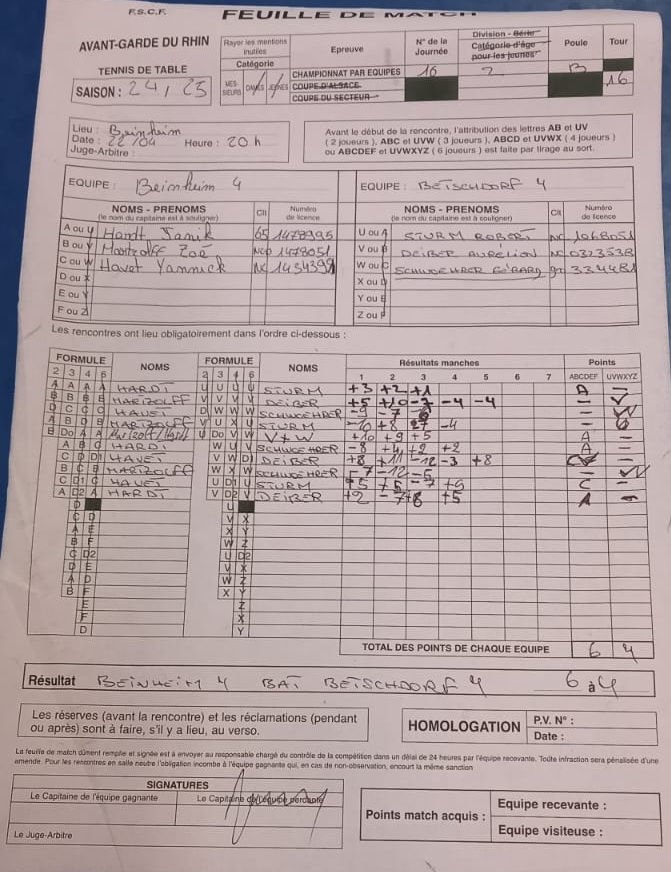 F.S.C.F. FEUILLE DE MATCH
AVANT-GARDE DU RHIN
TENNIS DE TABLE
SAISON : 24, 25
Rayer les mentions inutiles
Catégorie
MESSIEURS DAMES JEUNES
Epreuve
CHAMPIONNAT PAR EQUIPES
COUPE D'ALSACE
COUPE DU SECTEUR
N° de la Journée
16
Division - Série
Catégorie d'âge
pour les jeunes
2
Poule
B
Tour
16
Lieu : Beinheim
Date : 22/04 Heure : 20 h
Juge-Arbitre :
Avant le début de la rencontre, l'attribution des lettres AB et UV
( 2 joueurs ), ABC et UVW ( 3 joueurs ), ABCD et UVWX ( 4 joueurs )
ou ABCDEF et UVWXYZ ( 6 joueurs ) est faite par tirage au sort.
EQUIPE : Beinheim 4
EQUIPE : BETSCHDORF 4
NOMS - PRENOMS Clt Numéro de licence
(le nom du capitaine est à souligner)
NOMS - PRENOMS Clt Numéro de licence
(le nom du capitaine est à souligner)
A ou U Hardt Janik 65 1478995
U ou A STURM ROBERT NC 1068051
B ou V Zoé 1478051
V ou B DEIBER AURÉLION NC 0323538
C ou W Havet Yannick NC
W ou C SCHWOEHRER GÉRARD 334481
D ou X
X ou D
E ou Y
Y ou E
F ou Z
Z ou F
Les rencontres ont lieu obligatoirement dans l'ordre ci-dessous :
FORMULE NOMS FORMULE NOMS Résultats manches Points
2 3 4 6 2 3 4 6 1 2 3 4 5 6 7 ABCDEF UVWXYZ
A A A A HARDT U U U U STURM +3 +2 +1 A –
B B B B MARZOLFF V V V V DEIBER +5 +10 -7 -4 -4 – V
D C C C HAVET D W W W SCHWOEHRER -9 -7 – W
A B D B MARZOLFF V U X U STURM -10 +8 -4 –
B Do A A U Do V W V+W +10 +9 +5 A –
A B C HARDT W U V SCHWOEHRER -8 +4 +2 +2 A –
C D D1 HAVET V W D DEIBER +8 +11 -12 -3 +8 –
B C B MARZOLFF W X W SCHWOEHRER -7 -12 -5 –
C D1 C HAVET U D1 U STURM +5 +5 -7 +9 C –
A D2 A HARDT V D2 V DEIBER +2 -7 +8 +5 A –
D U
C D V X
A E X Y
B F W Z
C D2 U D2
D E V X
A D W Z
B F X Y
E Z
F X
D Y
TOTAL DES POINTS DE CHAQUE EQUIPE 6 4
Résultat BEINHEIM 4 BAT BETSCHDORF 4 6 à 4
Les réserves (avant la rencontre) et les réclamations (pendant
ou après) sont à faire, s'il y a lieu, au verso.
HOMOLOGATION
P.V. N° :
Date :
La feuille de match dûment remplie et signée est à envoyer au responsable chargé du contrôle de la compétition dans un délai de 24 heures par l'équipe recevante. Toute infraction sera pénalisée d'une
amende. Pour les rencontres en salle neutre l'obligation incombe à l'équipe gagnante qui, en cas de non-observation, encourt la même sanction
SIGNATURES
Le Capitaine de l'équipe gagnante
Le Capitaine de l'équipe perdante
Le Juge-Arbitre
Points match acquis :
Equipe recevante :
Equipe visiteuse :